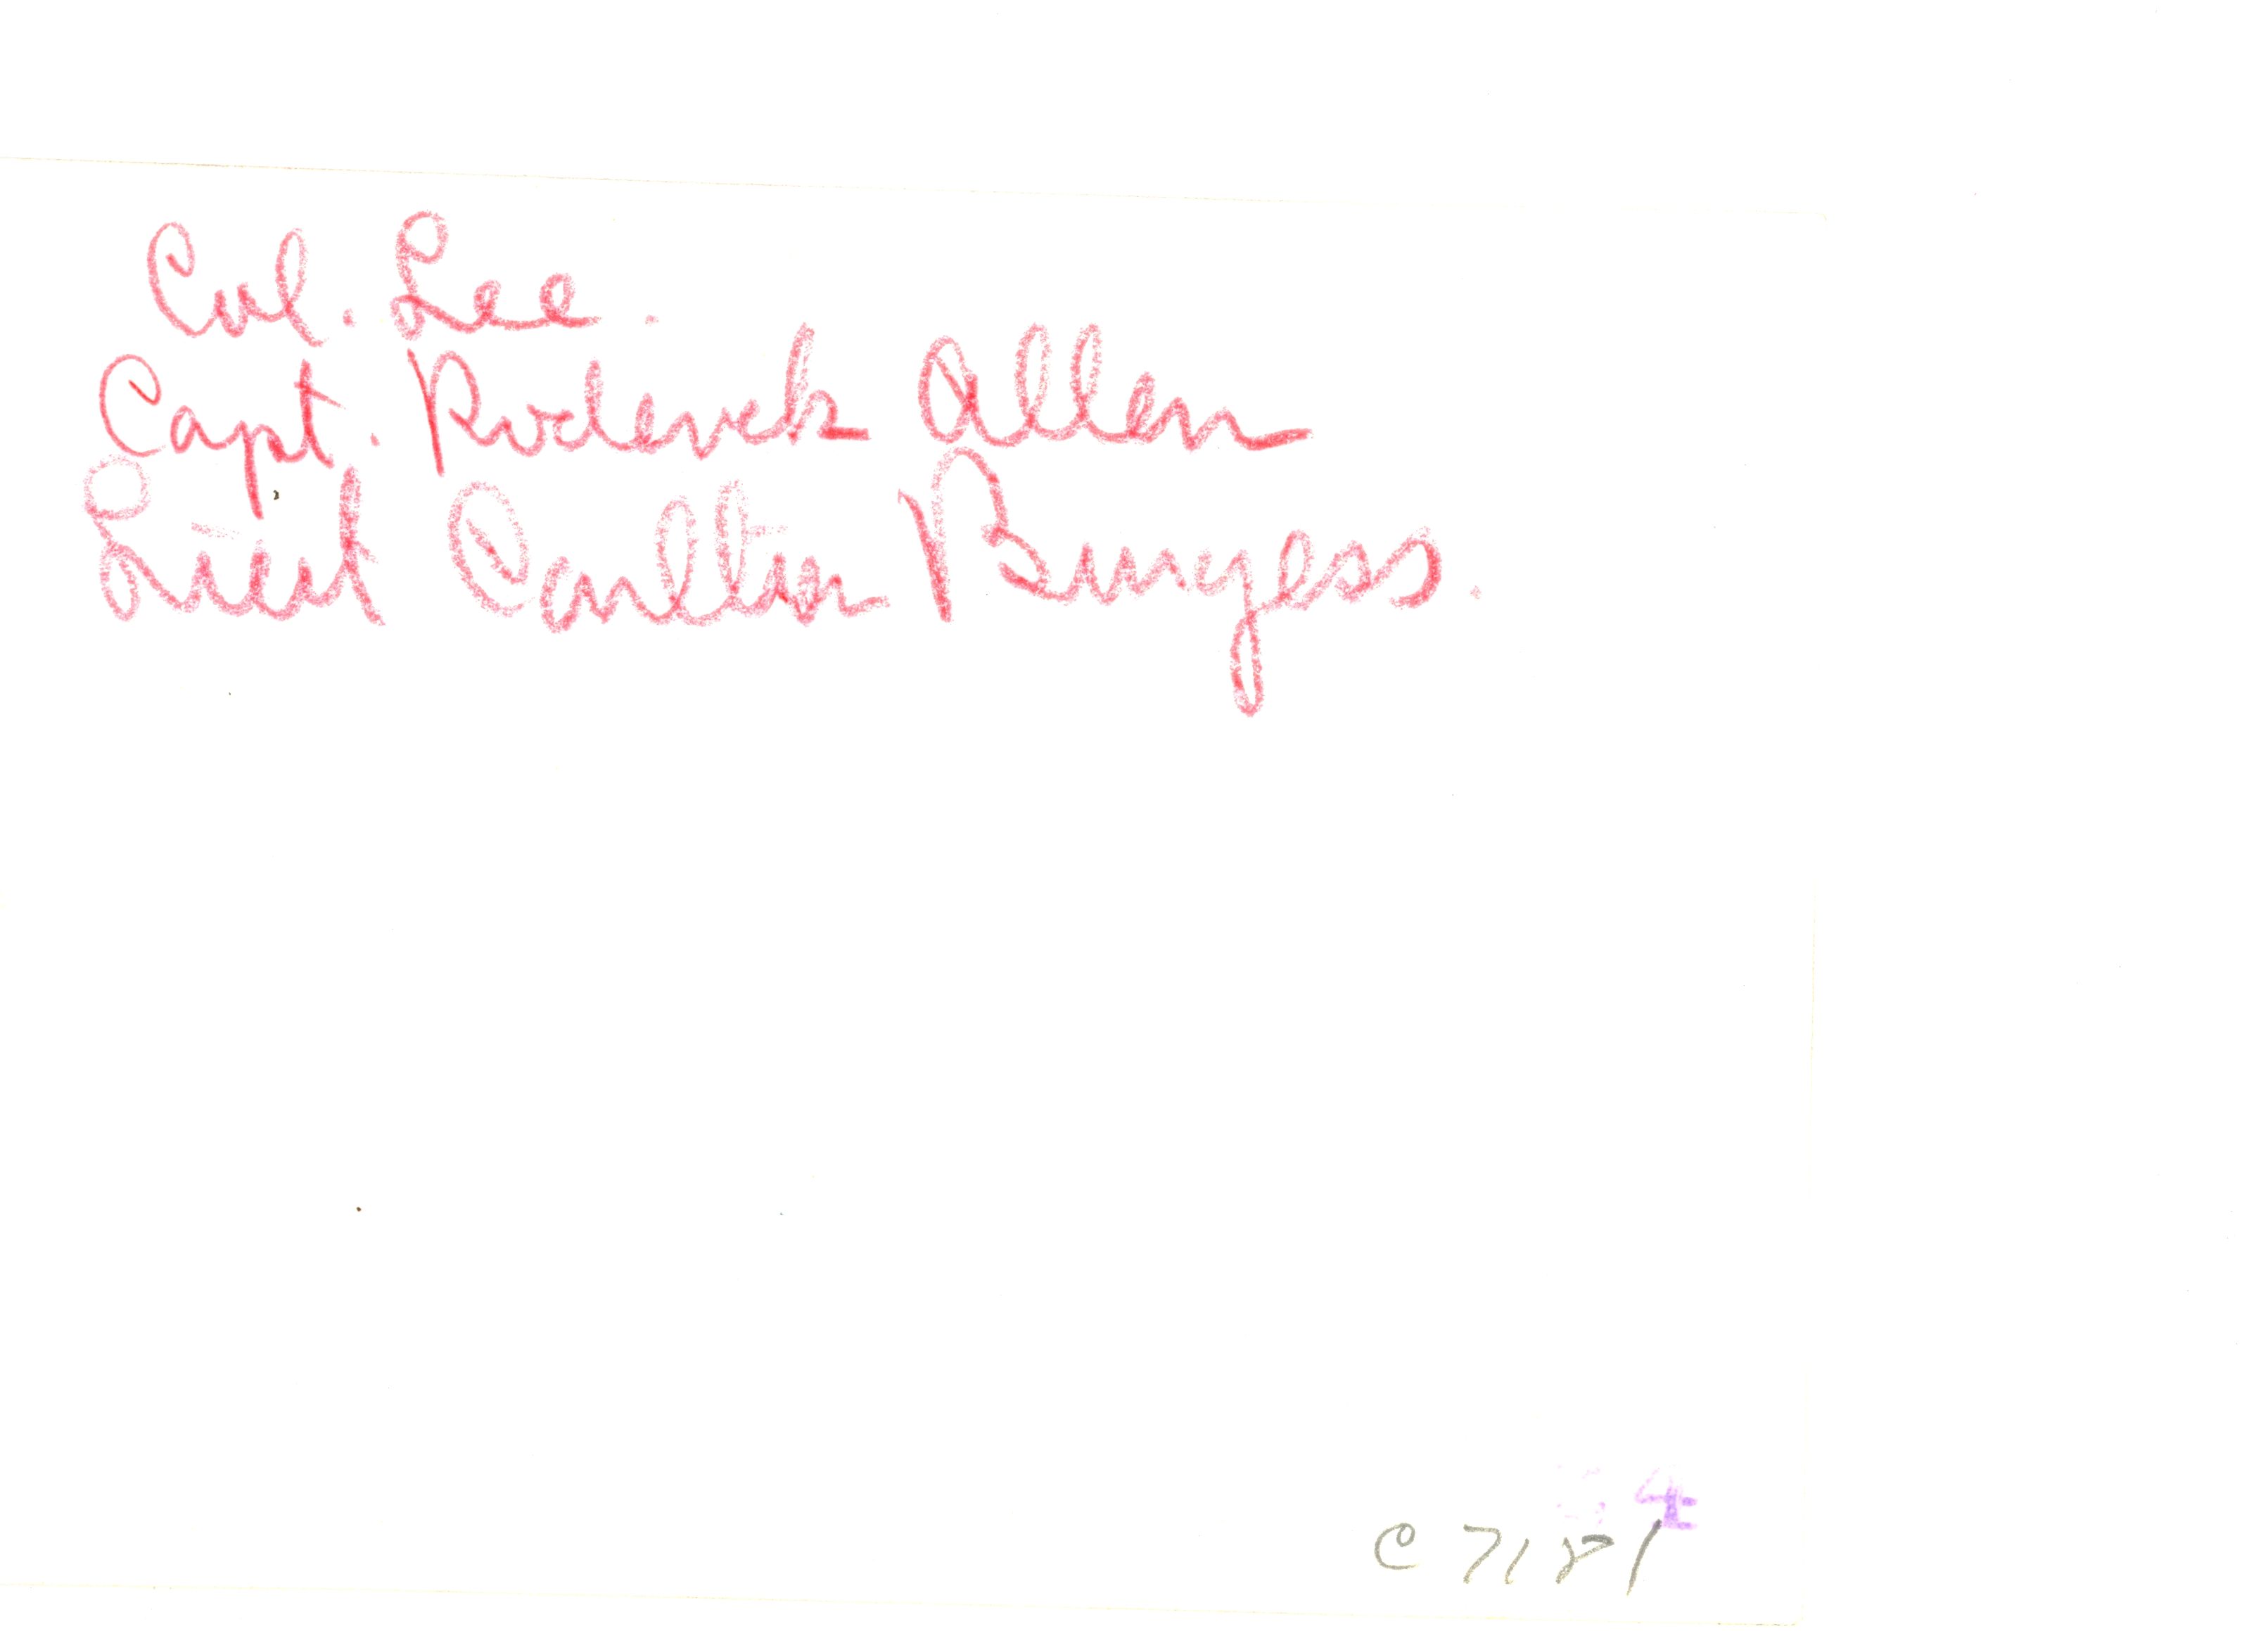 Col. Lee.
Capt. Roderick Allen
Lieut Carlton Burgess.
4
C 7181